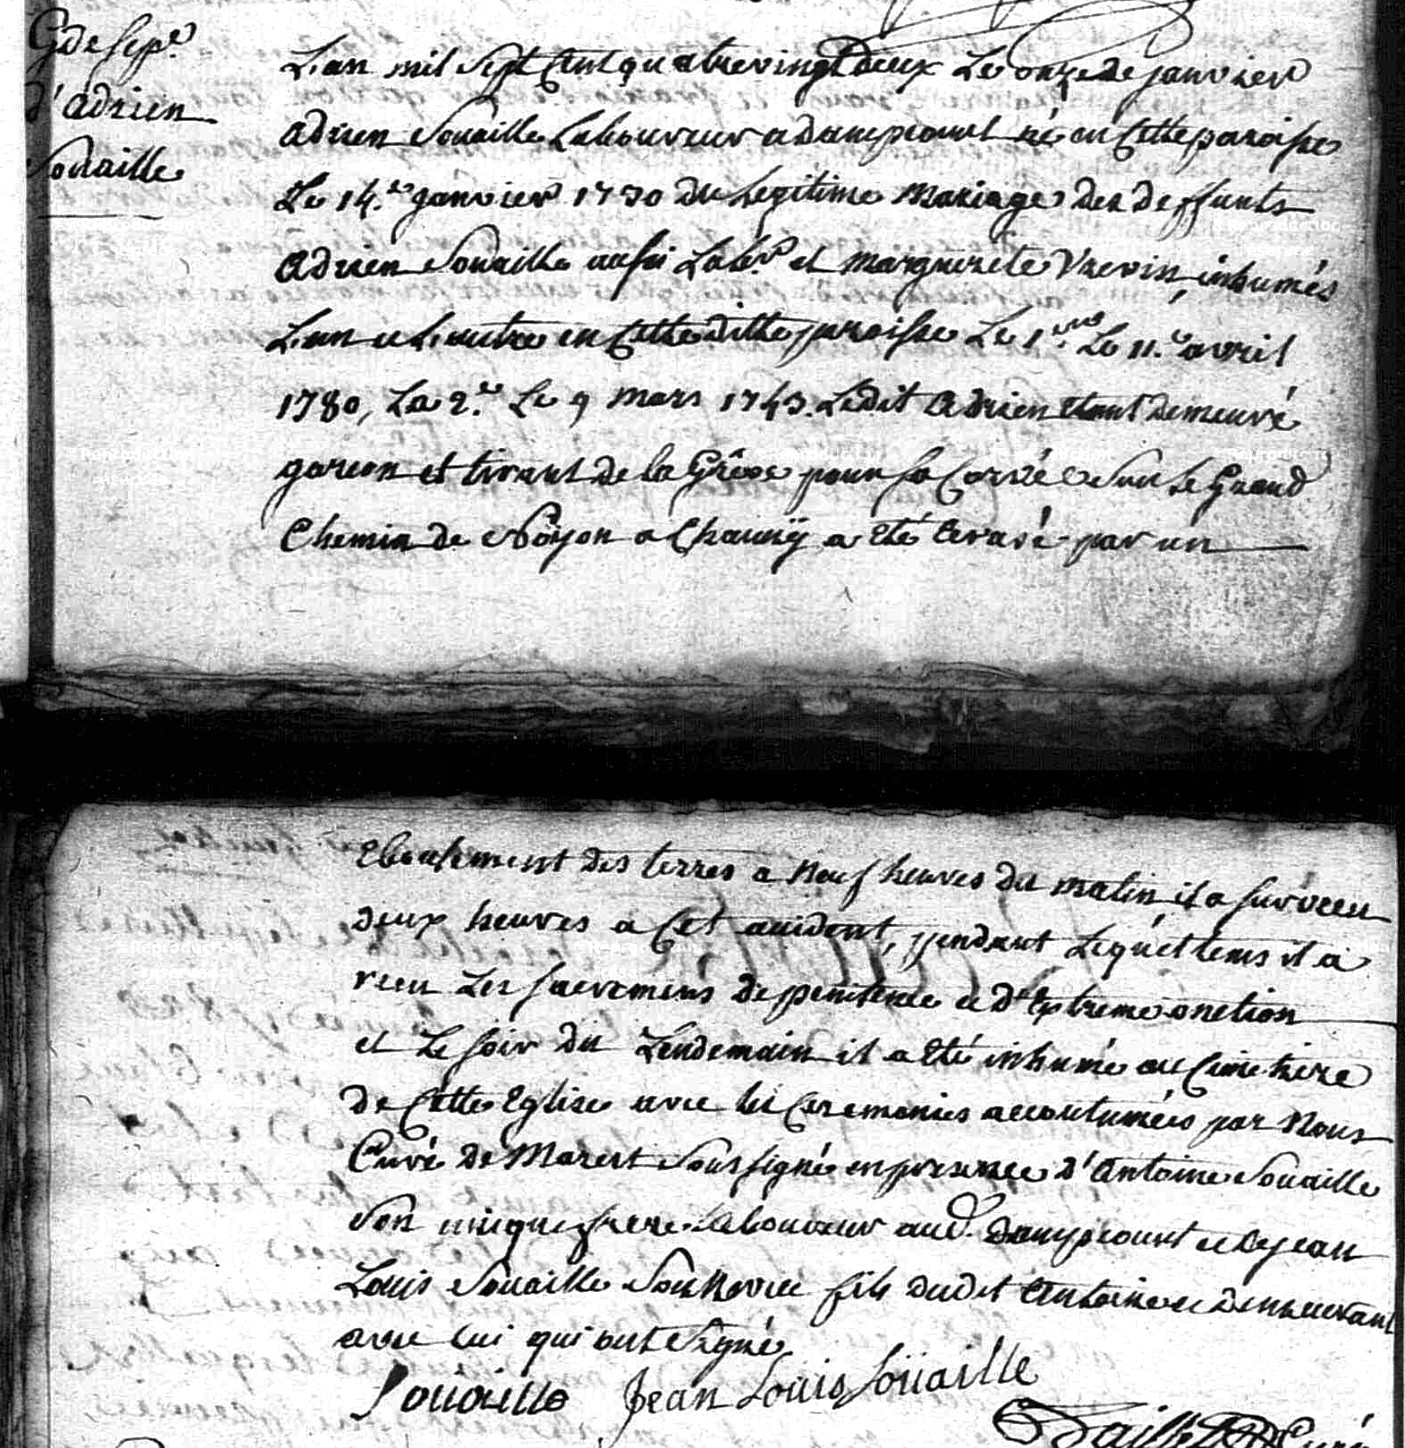 Gde sepre
d'adrien
Souaille
L'an mil Sept Cent quatre vingt deux Le onze de janvier
adrien Souaille Laboureur a dampcourt né en Cette paroisse
Le 14.e janvier 1730 du Legitime Mariage des deffunts
adrien Souaille aussi Labr. et marguerite Vrevin, inhumés
L'un et L'autre en Cette ditte paroisse Le 1.er Le 11.e avril
1780, La 2.e Le 9 mars 1743. Ledit adrien etant demeuré
garcon et tirant de la Grêve pour sa Corvée Sur Le Grand
Chemin de Noÿon a Chauny a eté Ecrasé par un
Eboulement des terres a neuf heures du matin il a survecu
deux heures a Cet accident, pendant Lequel tems il a
recu Les sacremens de penitence et d'Extreme onction
et Le soir du Lendemain il a eté inhumé au Cimetiere
de Cette Eglise avec les Ceremonies accoutumées par Nous
Curé de Marest Soussigné en presence d'Antoine Souaille
Son unique frere Laboureur aud. dampcourt et de jean
Louis Souaille Son Neveu fils dudit Antoine et demeurant
avec Lui qui ont Signé
Souaille Jean Louis Souaille
Curé